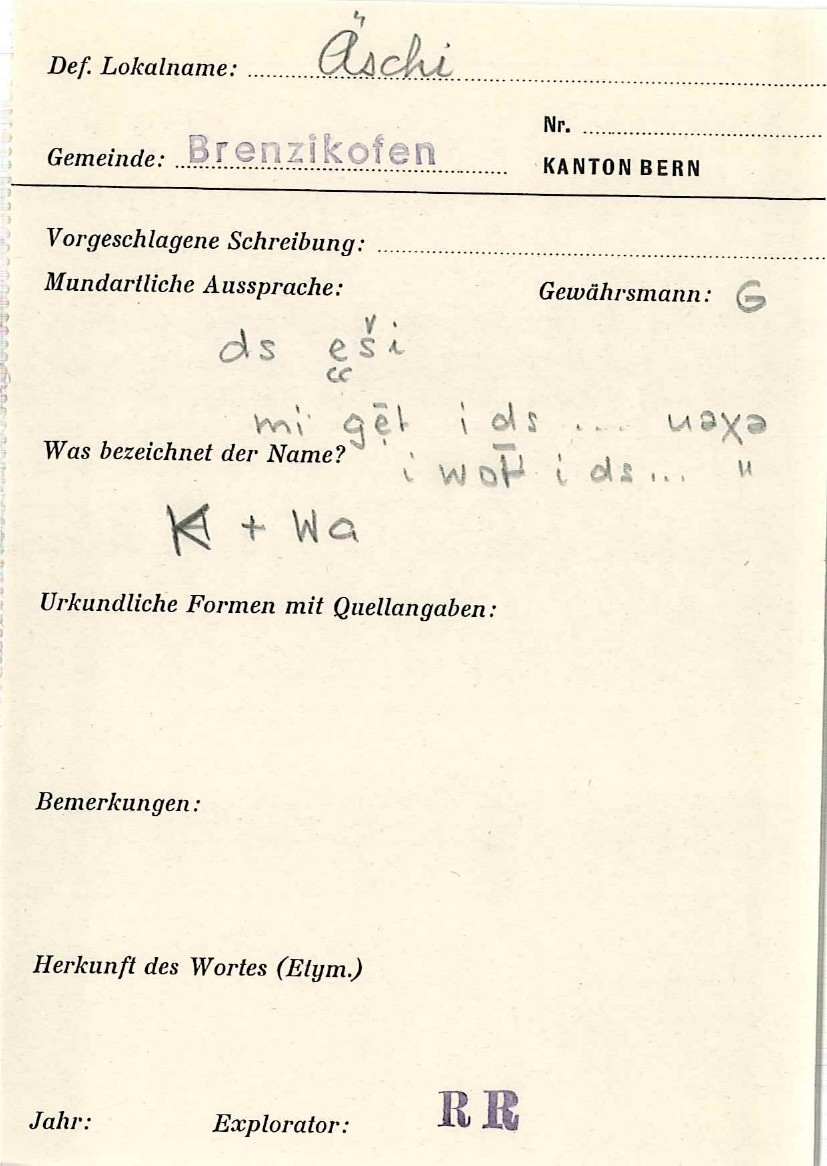 Def. Lokalname: Äschi
Nr.
Gemeinde: Brenzikofen
KANTON BERN
Vorgeschlagene Schreibung:
Mundartliche Aussprache: Gewährsmann: G
ds eši
mi gēt i ds ... uəxə
Was bezeichnet der Name?
i i ds ... "
+ Wa
Urkundliche Formen mit Quellangaben:
Bemerkungen:
Herkunft des Wortes (Etym.)
Jahr: Explorator: RR